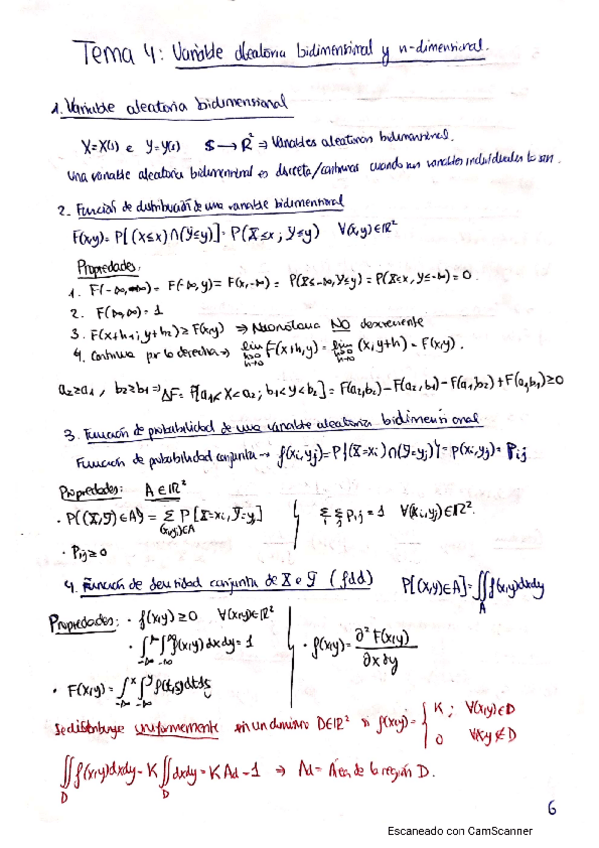 Tema 4: Variable aleatoria bidimensional y n-dimensional.
1. Variable aleatoria bidimensional
X=X(s) e Y=Y(s) S → R² ⇒ Variables aleatorias bidimensional.
Una variable aleatoria bidimensional es discreta/continuas cuando sus variables individuales lo son.
2. Función de distribución de una variable bidimensional
F(x,y) = P[(X≤x)∩(Y≤y)] = P(X≤x; Y≤y) ∀(x,y)∈R²
Propiedades:
1. F(-∞,-∞) = F(-∞,y) = F(x,-∞) = P(X≤-∞, Y≤y) = P(X≤x, Y≤-∞) = 0.
2. F(∞,∞) = 1
3. F(x+h₁; y+h₂) ≥ F(x,y) ⇒ Monótona NO decreciente
4. Continua por la derecha ⇒ lim h>0 h→0 F(x+h,y) = lim h>0 h→0 (x,y+h) = F(x,y).
a₂≥a₁, b₂≥b₁ ⇒ ΔF = P[a₁<X<a₂; b₁<Y<b₂] = F(a₂,b₂) - F(a₂,b₁) - F(a₁,b₂) + F(a₁,b₁) ≥ 0
3. Función de probabilidad de una variable aleatoria bidimensional
Función de probabilidad conjunta → f(xi,yj) = P{(X=xi)∩(Y=yj)} = p(xi,yj) = Pij
Propiedades: A∈R²
· P{(X,Y)∈A} = Σ (x,y)∈A P[X=xi, Y=y] Σi Σj Pij = 1 ∀(xi,yj)∈R².
· Pij ≥ 0
4. Función de densidad conjunta de X e Y (fdd) P[(X,Y)∈A] = ∬A f(x,y)dxdy
Propiedades: · f(x,y) ≥ 0 ∀(x,y)∈R²
· ∫-∞^∞ ∫-∞^∞ f(x,y)dxdy = 1 · f(x,y) = ∂²F(x,y)/∂x∂y
· F(x,y) = ∫-∞^x ∫-∞^y f(t,s)dtds
Se distribuye uniformemente en un dominio D∈R² si f(x,y) = { K; ∀(x,y)∈D
0 ∀x,y∉D
∬D f(x,y)dxdy = K ∬D dxdy = K Ad = 1 ⇒ Ad = Área de la región D.
6
Escaneado con CamScanner